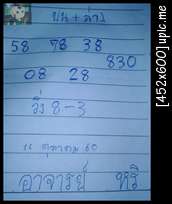 บน + ล่าง
58 78 38
830
08 28
วิ่ง 8-3
16 ตุลาคม 60
อาจารย์ หริ
[452x600] upic.me